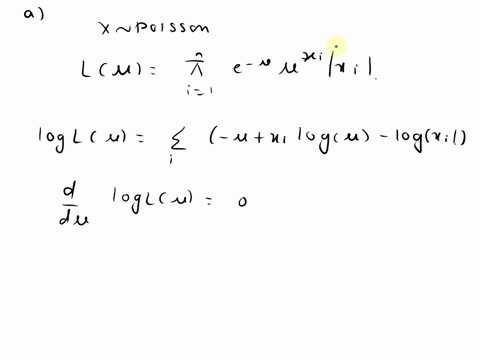 a)
X ~ Poisson
L(μ) = π_{i=1}^{n} e^{-μ} μ^{xi} / xi!
log L(μ) = Σ_i (-μ + xi log(μ) - log(xi!)
d/dμ log L(μ) = 0